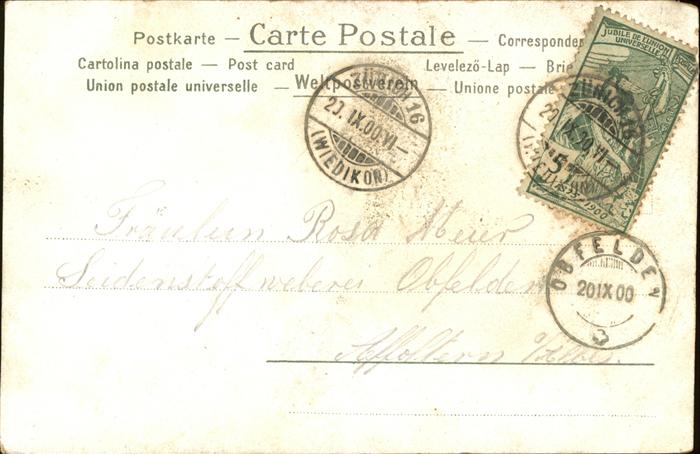 Postkarte — Carte Postale — Corresponden
Cartolina postale — Post card Levelező-Lap — Brie
Union postale universelle — Weltpostverein — Unione postale
JUBILÉ DE L'UNION
UNIVERSELLE
5
1900
ZÜRICH 16
20.IX.00.VI—
(WIEDIKON)
ZÜRICH 16
20.IX.00.VI—
Fräulein Rosa Meier
Seidenstoffweberei Obfelden
Affoltern a/Albis.
OBFELDEN
20 IX 00